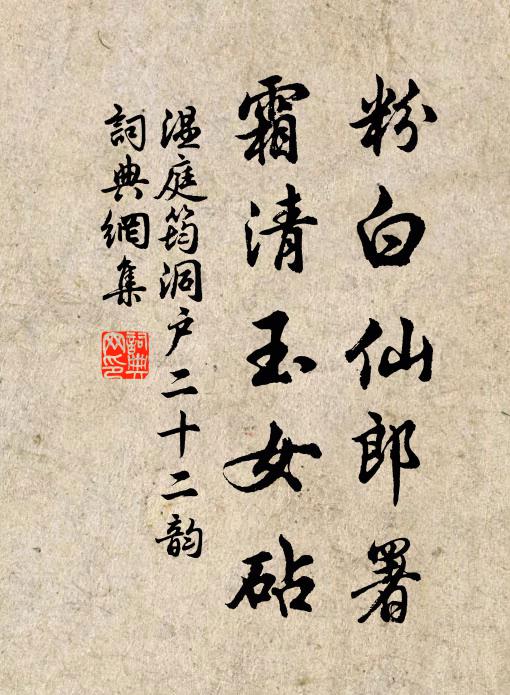 粉白仙郎署
霜清玉女砧
温庭筠洞户二十二韵
词典網集
詞典网印